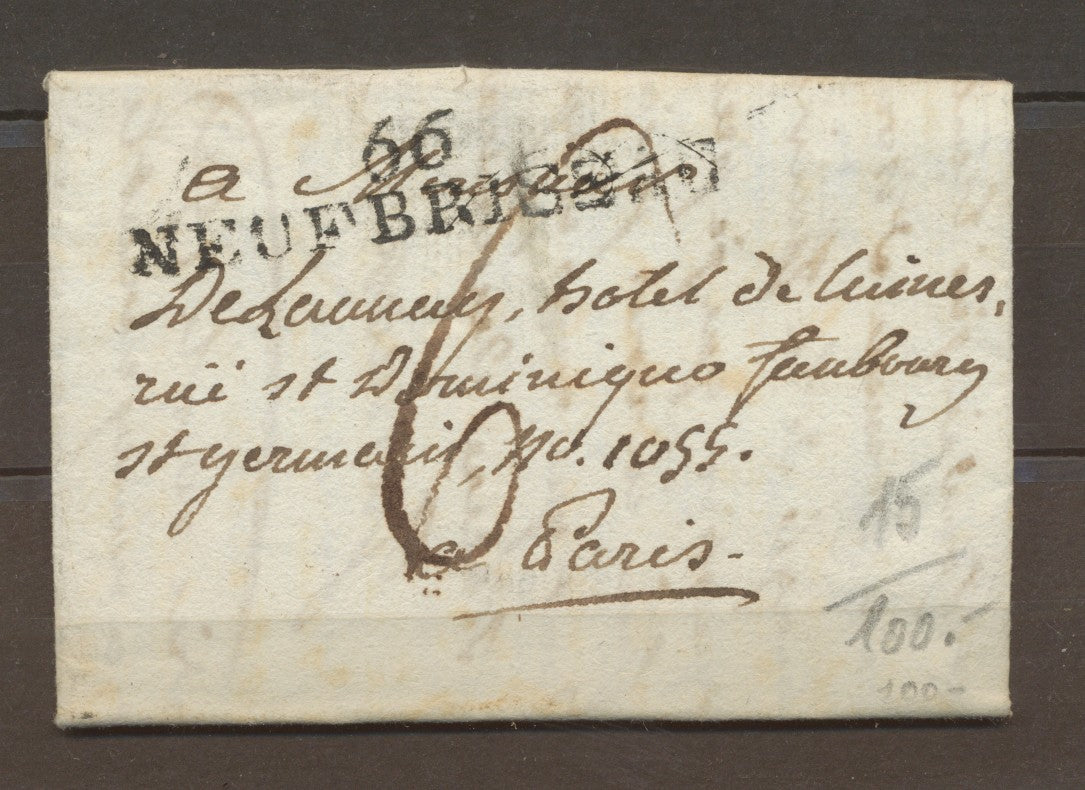 66
a Monsieur
NEUFBRISSAC
DeLaunay, hotel de luines,
ruë st Dominique faubourg
st germain, No. 1055.
6
a Paris.
15
100.
100-